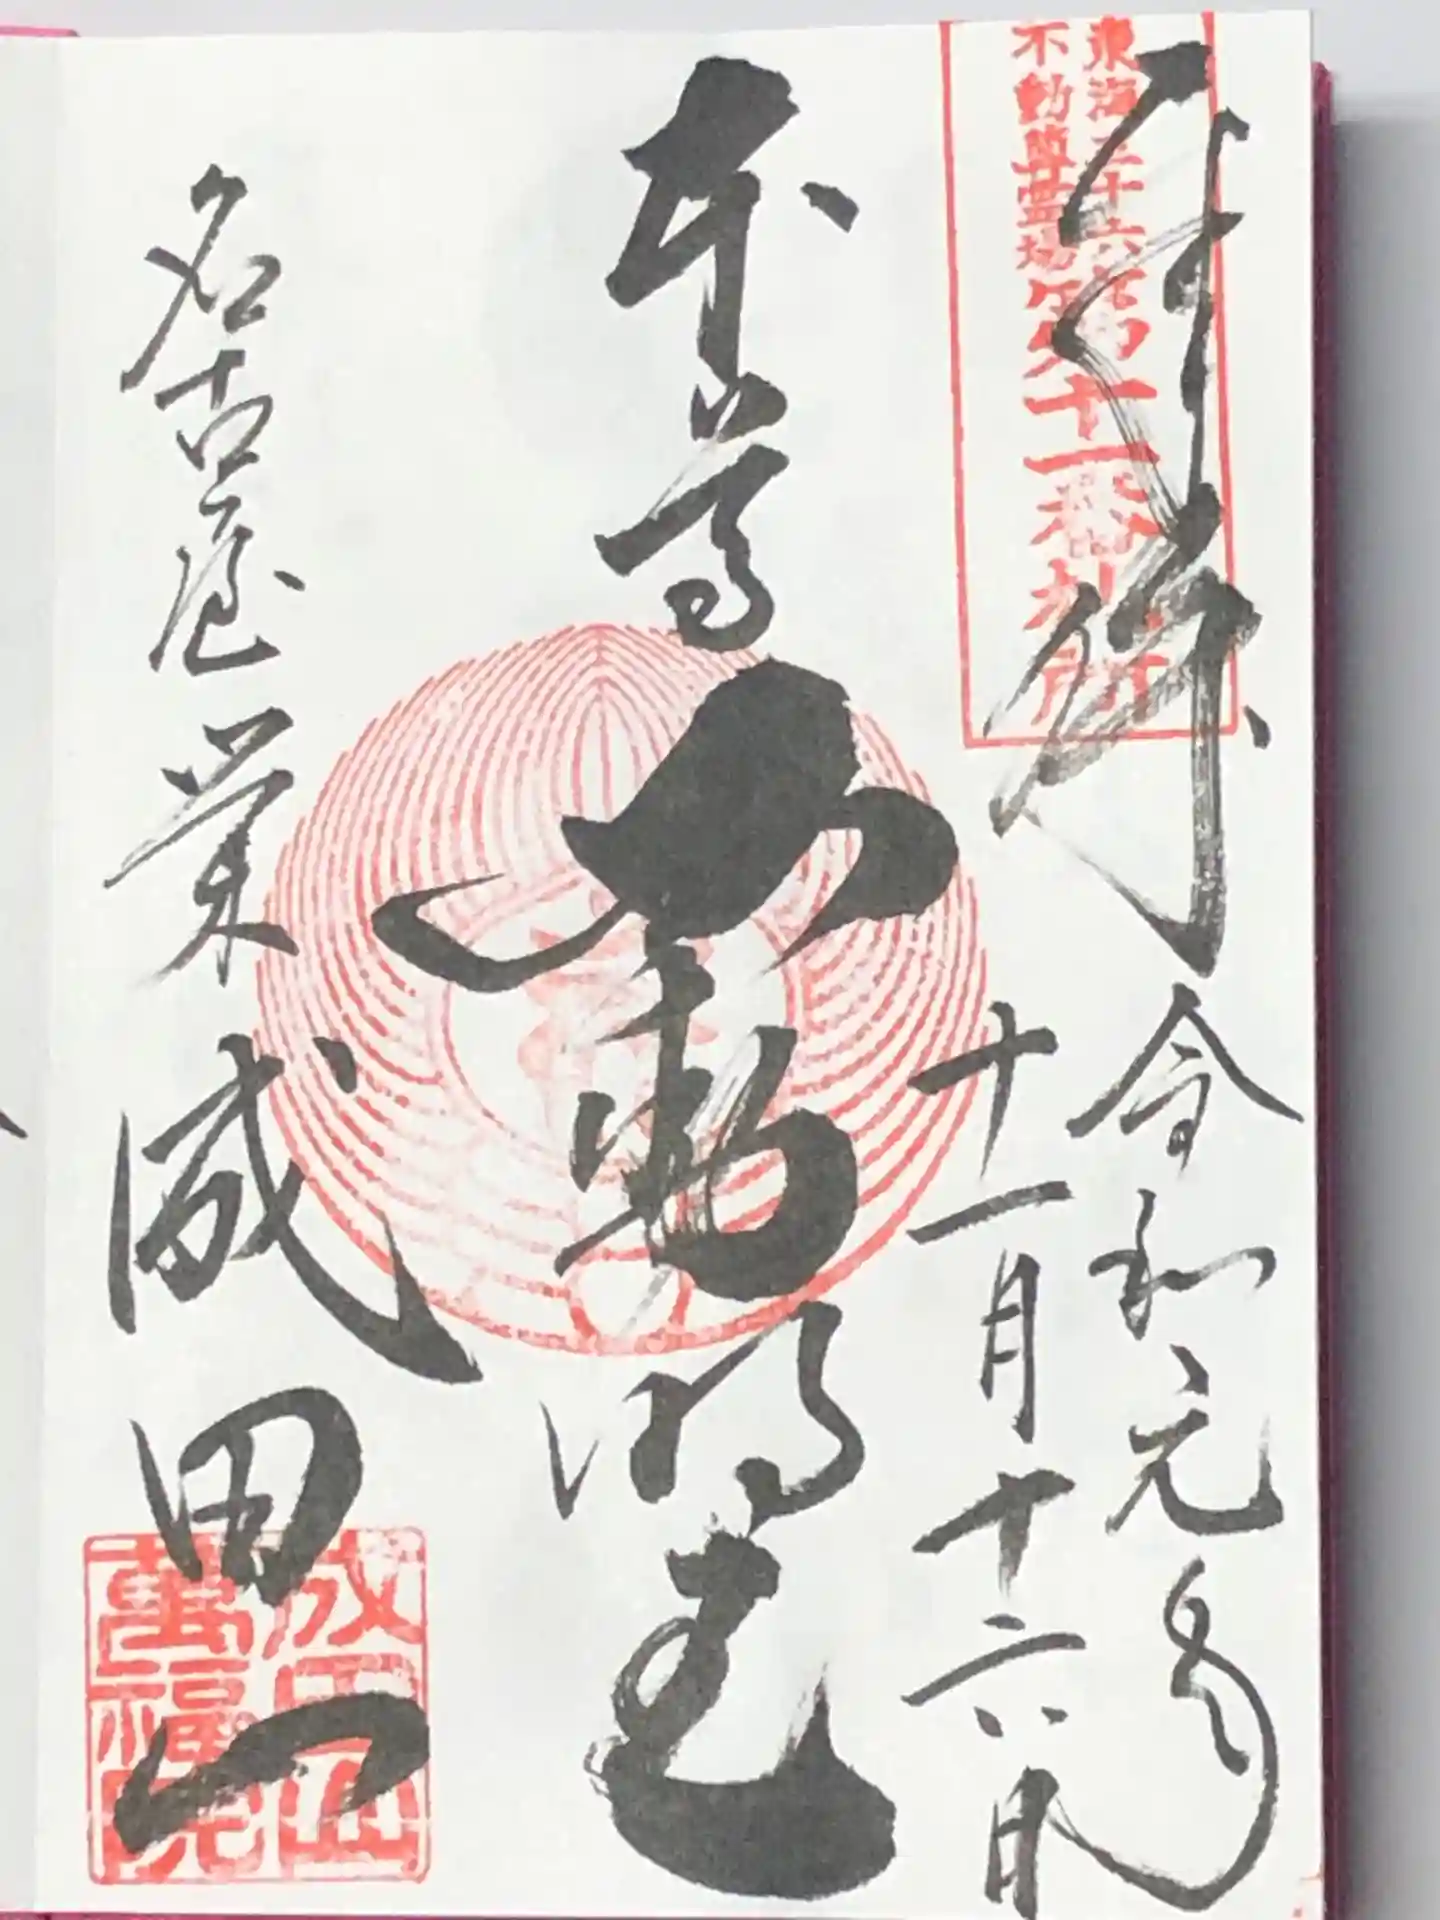 奉拝
令和元年
十一月十六日
東海三十六
不動尊霊場
第十一番札所
本尊
不動明王
名古屋栄
成田山
成田山
萬福院